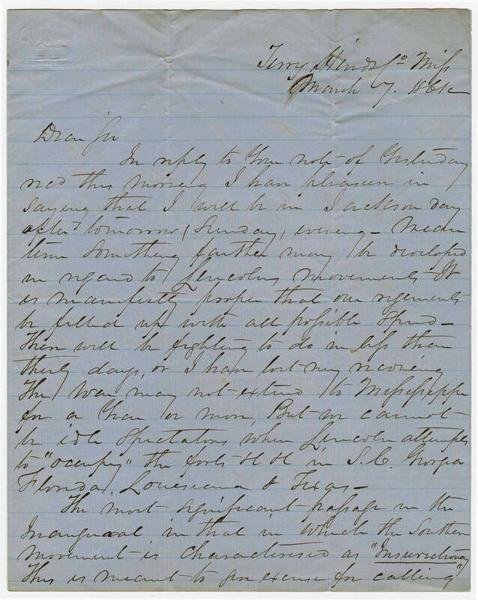 Terry Hinds Co Miss
March 7. 1861
Dear Sir
In reply to Your note of Yesterday
recd this morning I have pleasure in
saying that I will be in Jackson day
after tomorrow (Sunday) evening – Mean
time something further may be developed
in regard to Lincolns movements It
is manifestly proper that our regiments
be filled up with all possible speed –
There will be fighting to do in less than
thirty days, or I have lost my reckoning
The War may not extend to Mississippi
for a Year or more, But we cannot
be idle spectators when Lincoln attempts
to "occupy" the forts &c &c in S.C. Georgia
Florida, Louisiana & Texas –
The most significant passage in the
Inaugural is that in which the Southern
movement is characterised as "Insurrectionary"
This is meant to give excuse for calling